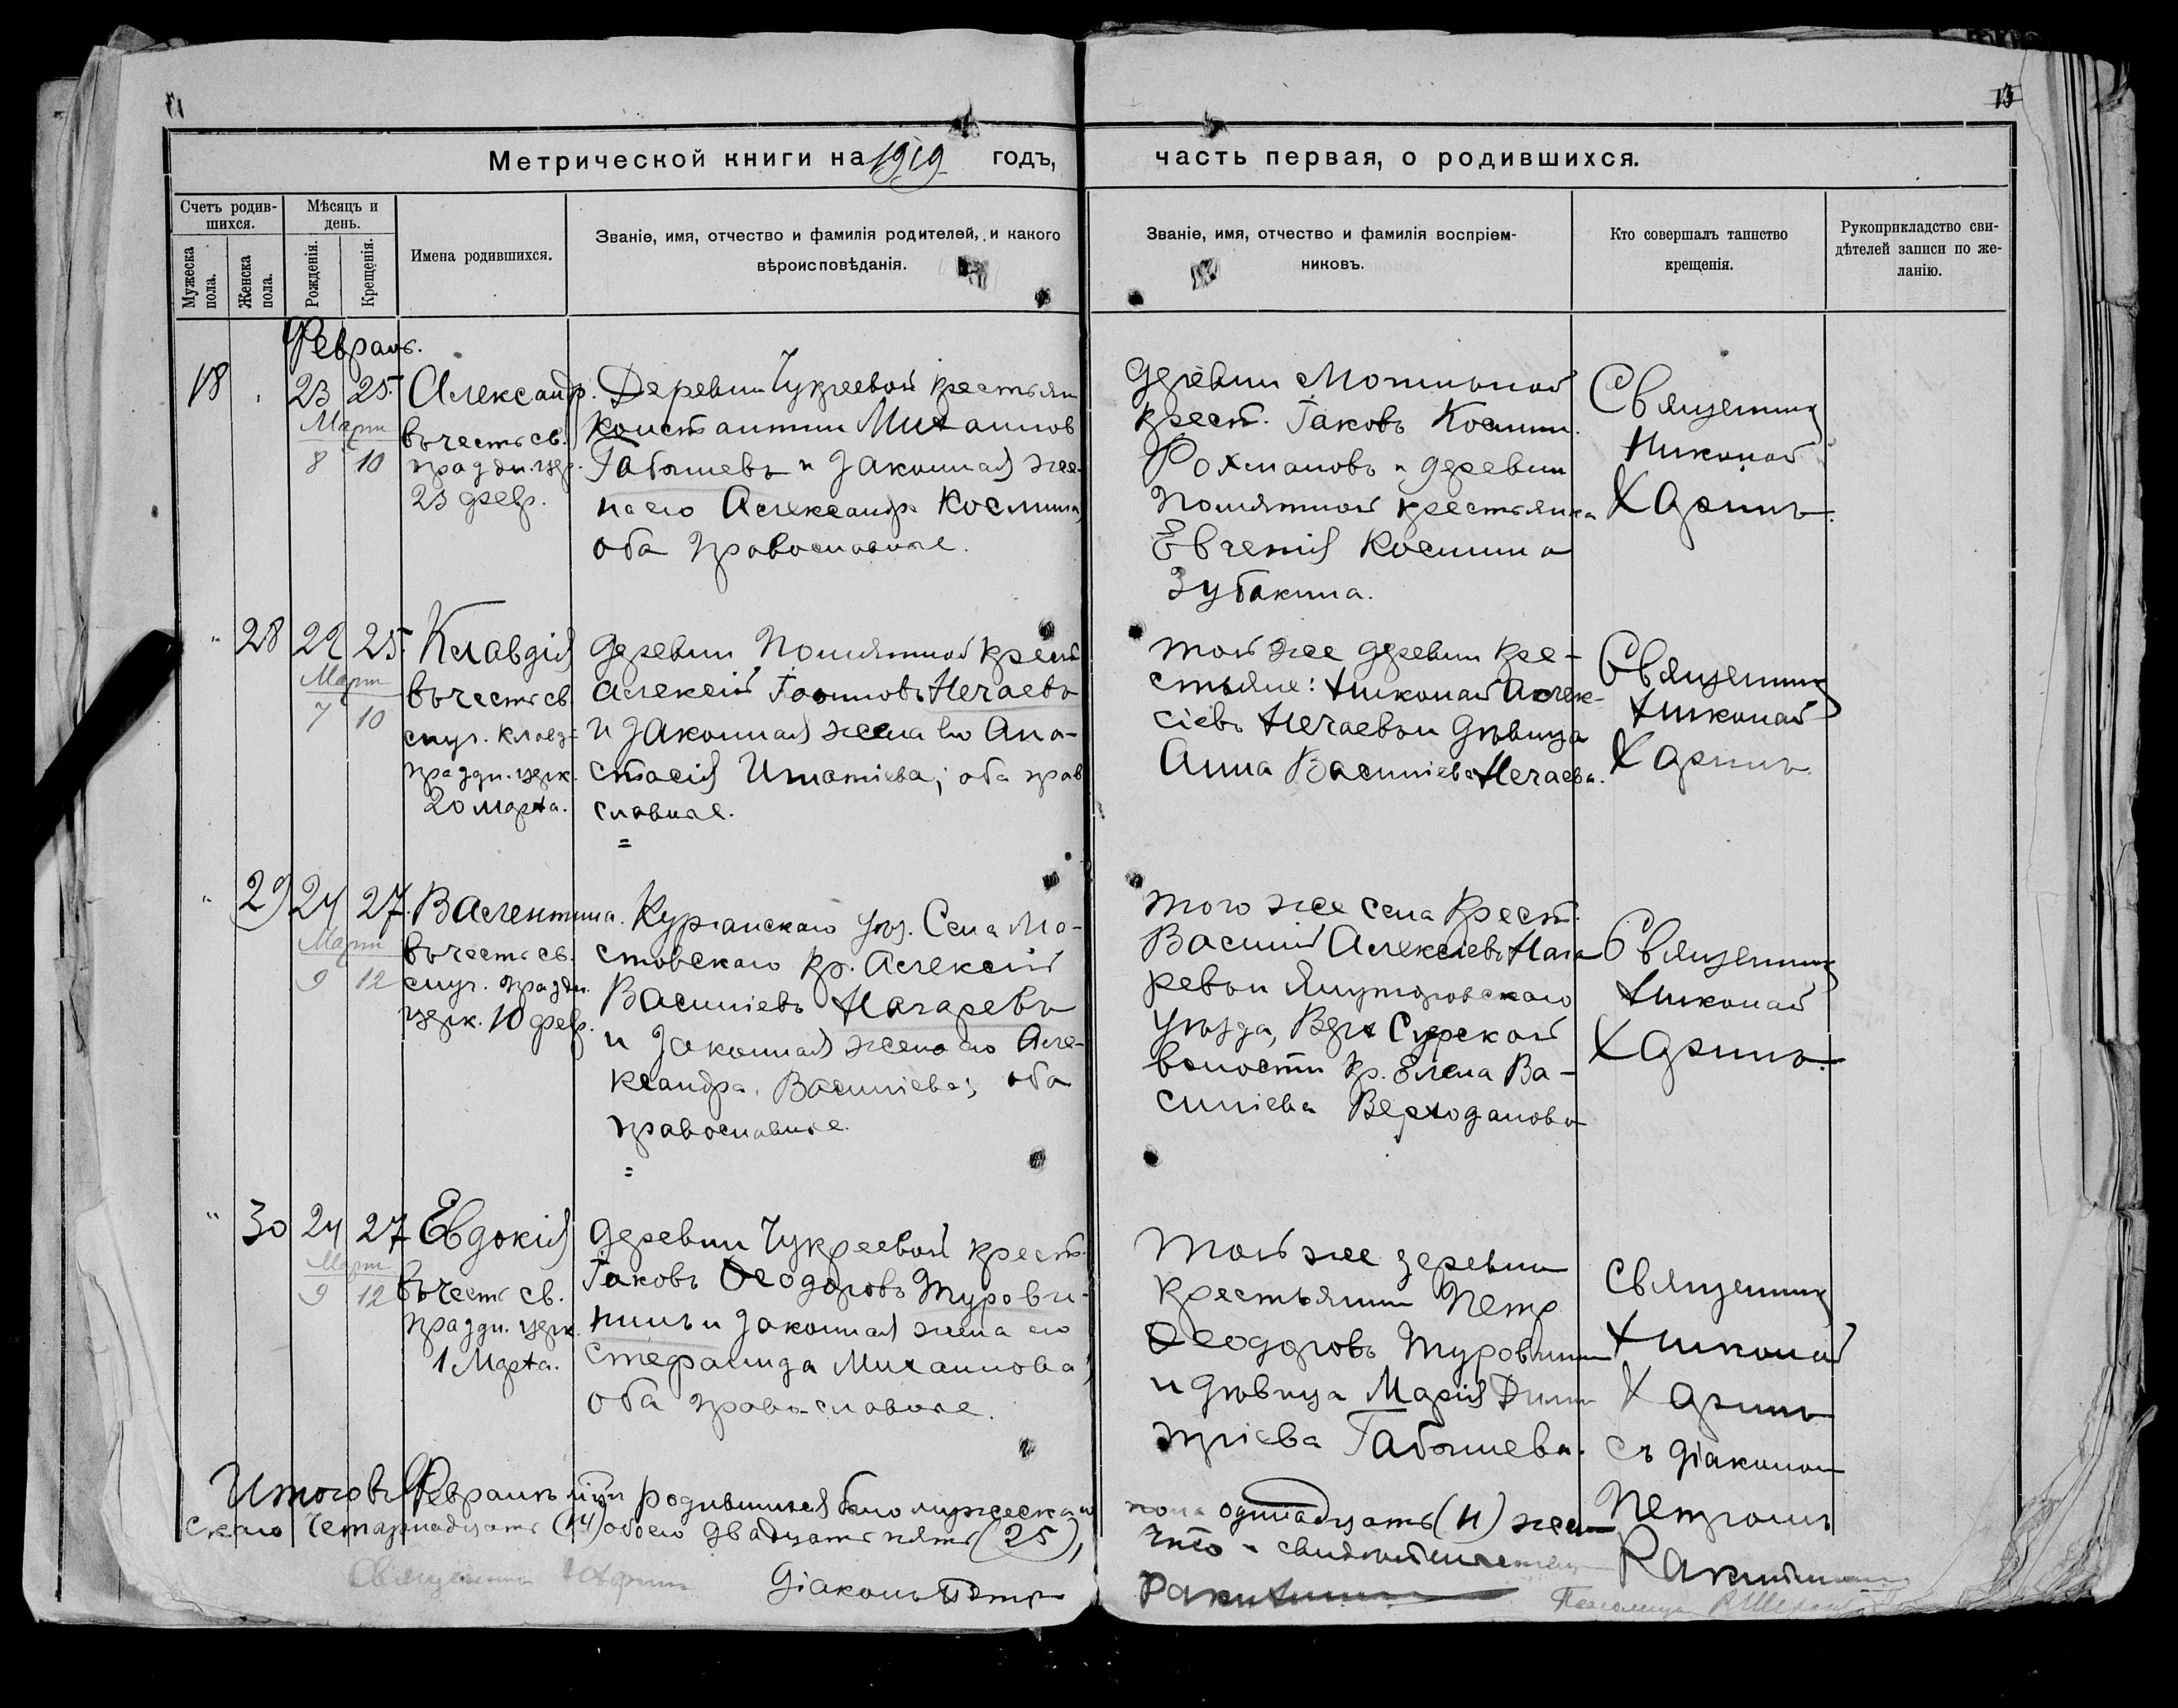 13
Метрической книги на 1919 годъ,
часть первая, о родившихся.
Счетъ родив-
шихся.
Мужеска
пола.
Женска
пола.
Мѣсяцъ и
день.
Рожденія.
Крещенія.
Имена родившихся.
Званіе, имя, отчество и фамилія родителей, и какого
вѣроисповѣданія.
Званіе, имя, отчество и фамилія воспріем-
никовъ.
Кто совершалъ таинство
крещенія.
Рукоприкладство сви-
дѣтелей записи по же-
ланію.
Февраль.
18
23 25.
Март
8 10
Александр.
въ честь св.
праздн. цер.
23 февр.
Деревни Чукреевой крестьян
Константин Михаилов
Габышевъ и законная же-
на его Александра Космина,
оба православные.
деревни
крест. Іаковъ Космин.
Рохмановъ и деревни
крестьянка
Евгенія Космина
Зубакина.
Священник
Николай
Харинъ.
" 28 22 25.
Март
7 10
Клавдія
въ честь св.
муч. Клавд.
праздн. церк.
20 марта.
деревни крест.
Алексій Іоаннов Нечаевъ
и законная жена его Ана-
стасія Игнатіева; оба прав
славные.
=
той же деревни кре-
стьяне: Николай Алек-
сіевъ Нечаевъ и дѣвица
Анна Василіева Нечаева.
Священник
Николай
Харинъ.
" 29 24 27.
Март
9 12
Валентина.
въ честь св.
муч. праздн.
церк. 10 февр.
Курганскаго уѣз. Села Мо-
стовскаго кр. Алексій
Василіевъ Нагаревъ
и законная жена его Але-
ксандра Василіева; оба
православные.
=
того же села крест.
Василій Алексіевъ Нага
ревъ и Ялуторовскаго
уѣзда, Верх Суерской
волости кр. Елена Ва-
силіева Верходанова
Священник
Николай
Харинъ.
" 30 24 27
Март
9 12
Евдокія
въ честь св.
праздн. церк.
1 Марта.
деревни Чукреевой крест.
Іаковъ Ѳеодоровъ Турови-
нинъ и законная жена его
Стефанида Михаилова;
оба православные.
Той же деревни
крестьянин Петр
Ѳеодоровъ Туровинин
и дѣвица Марія Дими
тріева Габышева.
Священник
Николай
Харинъ
съ діаконом
Петромъ
Ракитиным
Итого въ Февралѣ м-цѣ родившихся было мужеска
пола одинадцать (11) жен
скаго четырнадцать (14) обоего двадцать пять (25),
что и свидѣтельствуем
Священник Харин
Діаконъ Петр
Ракитин
Псаломщик